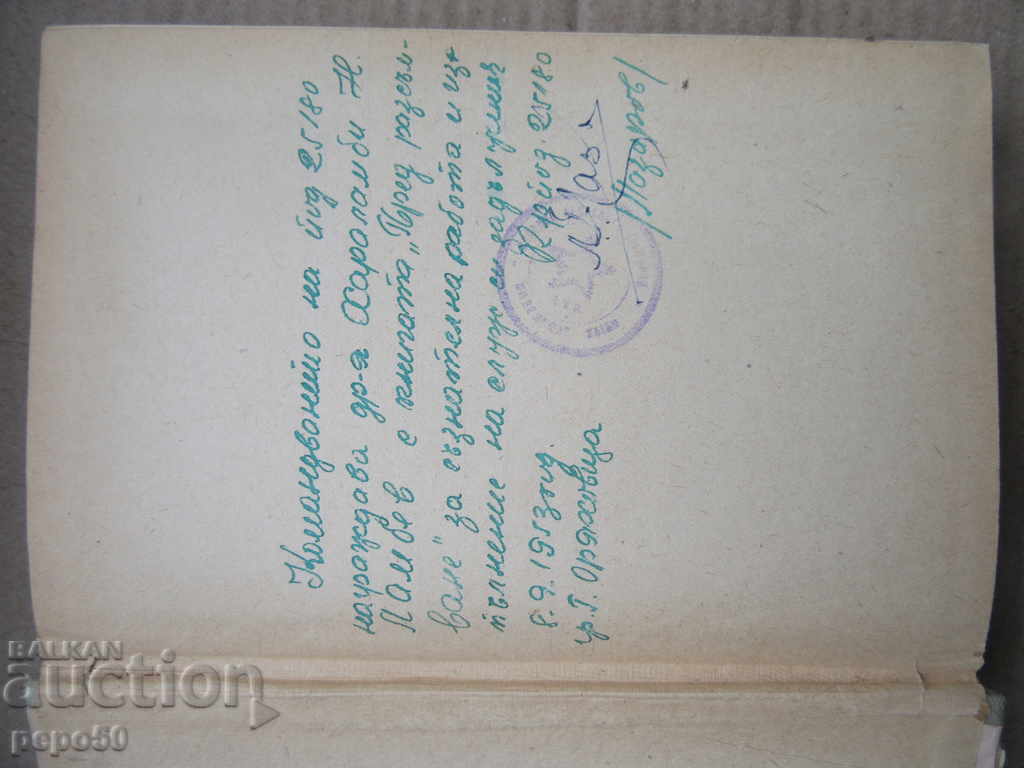 Командването на под 25180
награждава др-я Харалампи Н.
Памвев с книгата „Пред разсъм-
ване" за съзнателна работа и из-
пълнение на служ. си задължения
8.9.1953 год
гр. Г. Оряховица
К р под. 25180
/Лазаров/.
BALKAN
auction
pepo50